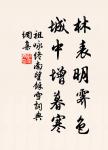 林表明霽色
城中增暮寒
祖咏终南望餘雪詞典
網集